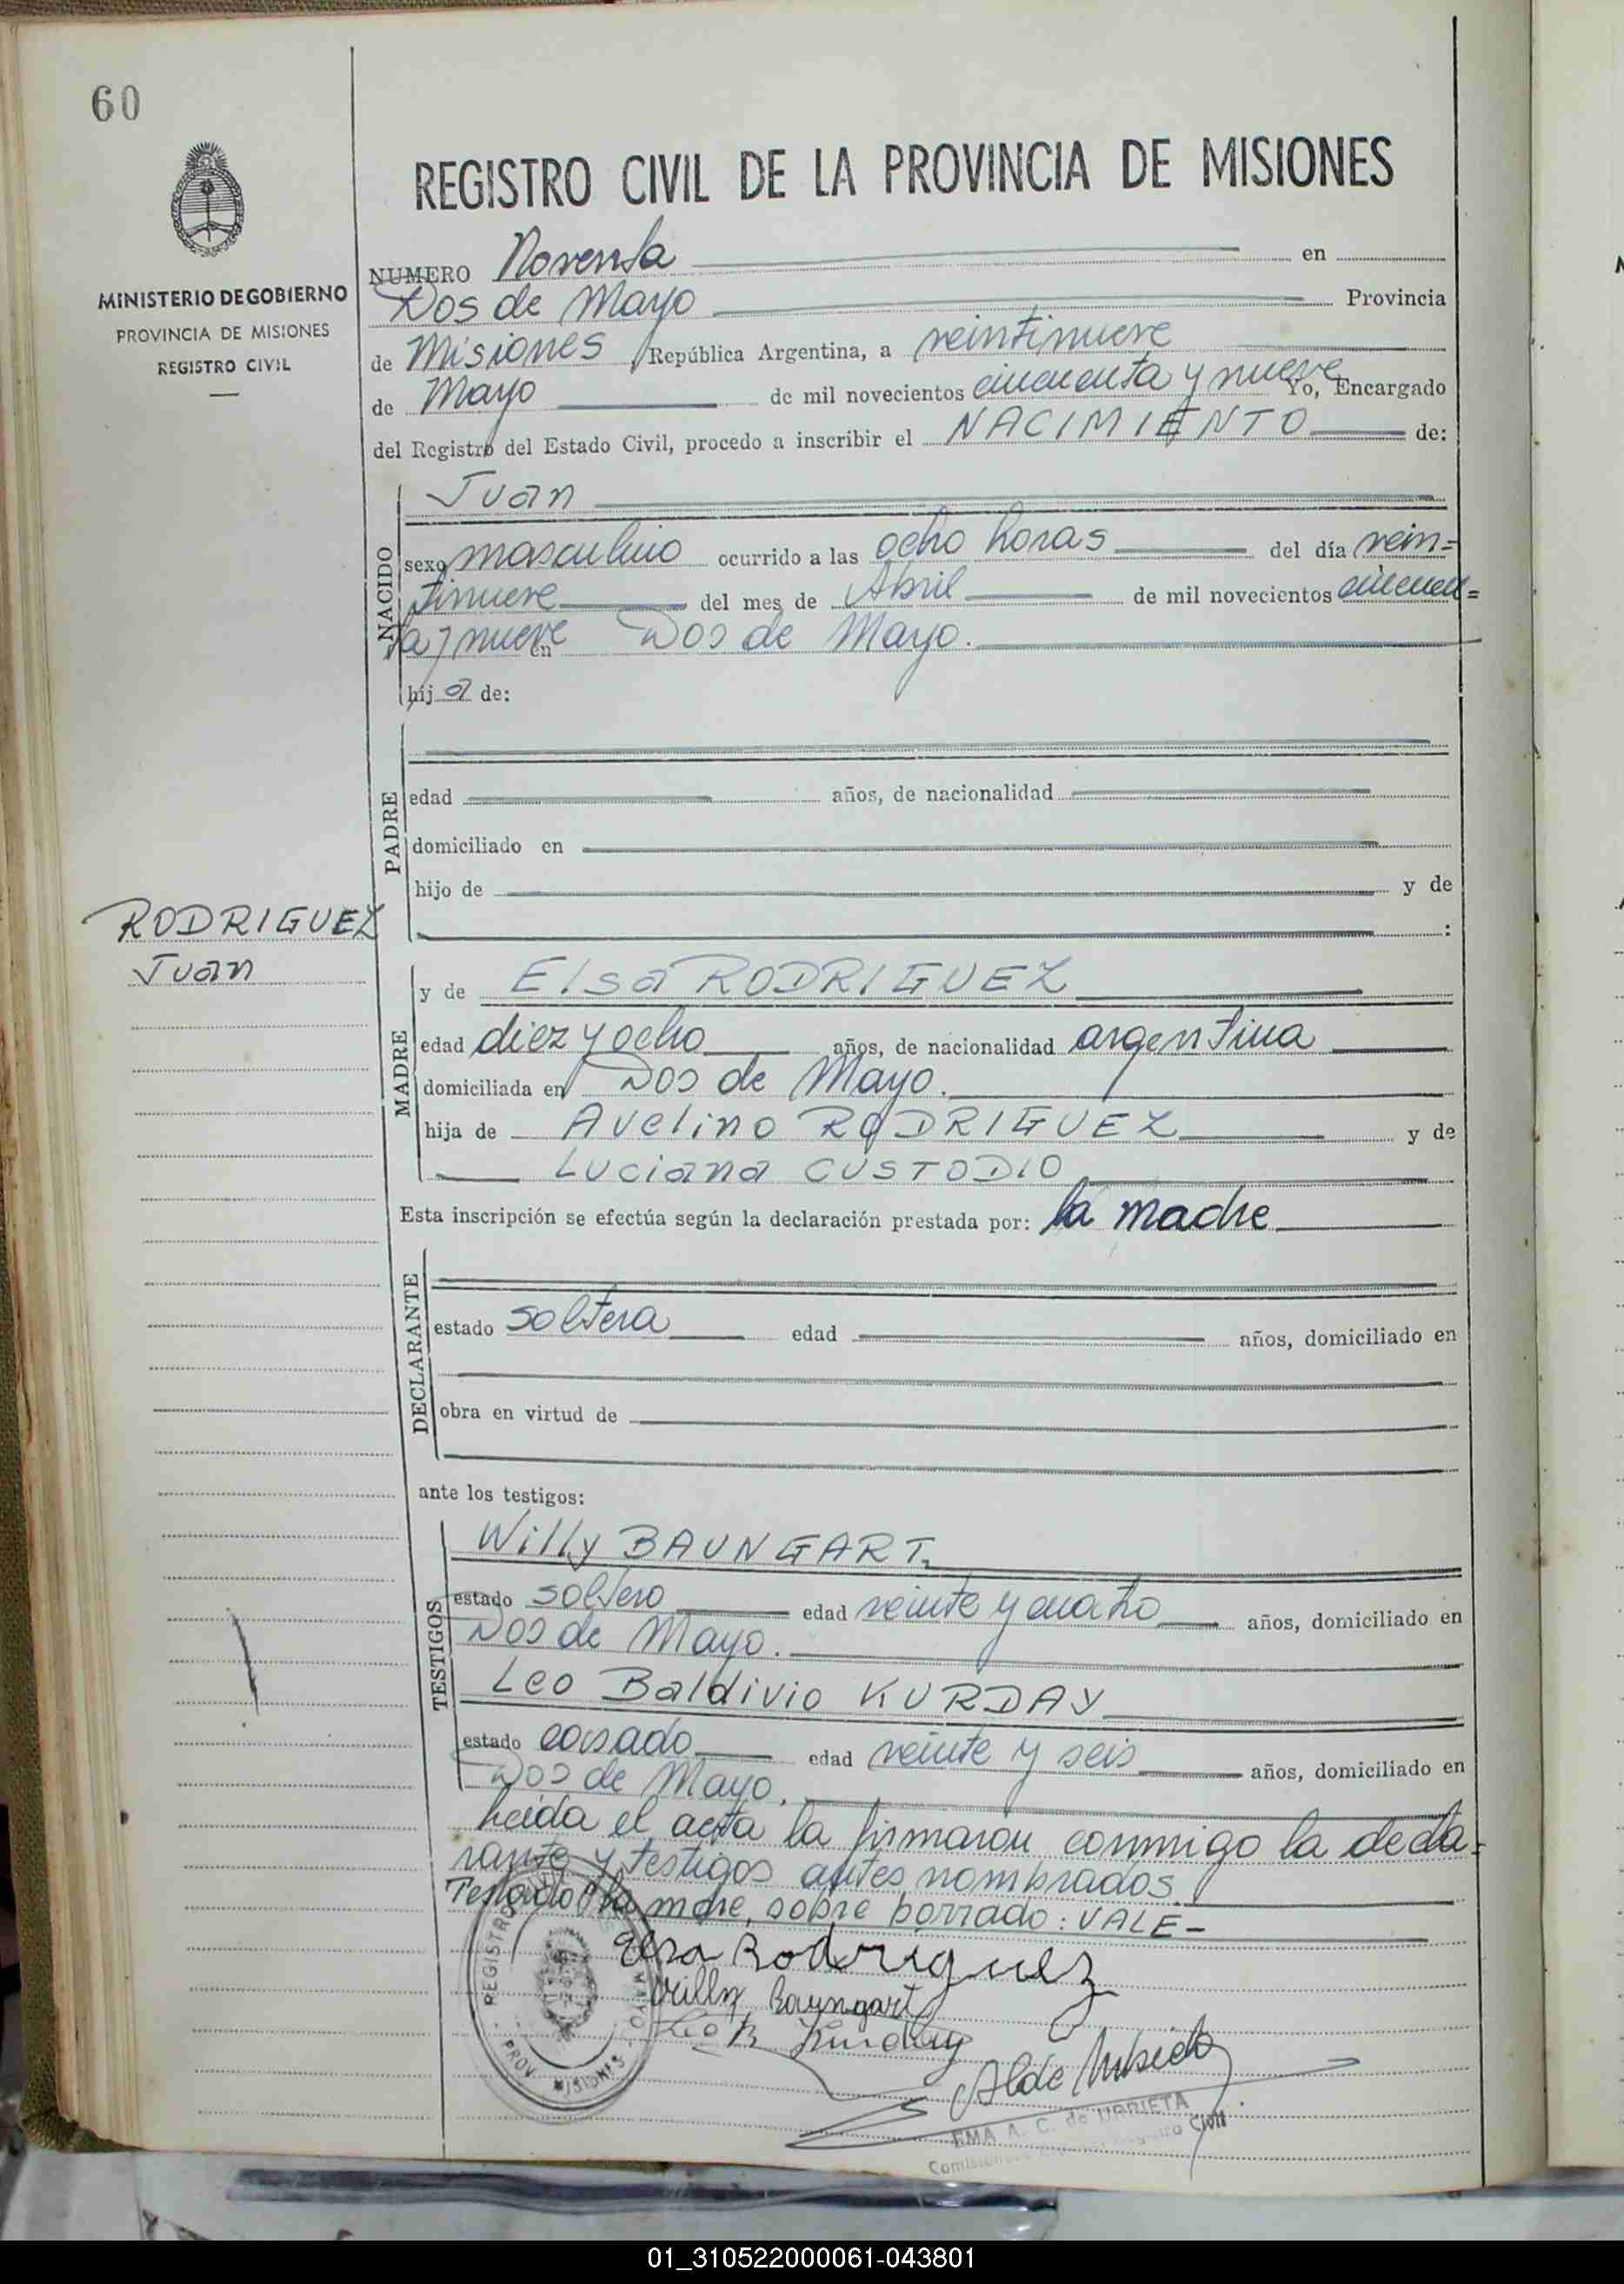 60
REGISTRO CIVIL DE LA PROVINCIA DE MISIONES
MINISTERIO DE GOBIERNO
PROVINCIA DE MISIONES
REGISTRO CIVIL
NUMERO Noventa en
Dos de Mayo Provincia
de Misiones, República Argentina, a veintinueve
de Mayo de mil novecientos cincuenta y nueve Yo, Encargado
del Registro del Estado Civil, procedo a inscribir el NACIMIENTO de:
NACIDO
Juan
sexo masculino ocurrido a las ocho horas del día vein=
tinueve del mes de Abril de mil novecientos cincuen=
ta y nueve en Dos de Mayo.
hij o de:
PADRE
edad años, de nacionalidad
domiciliado en
hijo de y de
:
RODRIGUEZ
Juan
MADRE
y de Elsa RODRIGUEZ
edad diez y ocho años, de nacionalidad argentina
domiciliada en Dos de Mayo.
hija de Avelino RODRIGUEZ y de
Luciana CUSTODIO
Esta inscripción se efectúa según la declaración prestada por: la madre
DECLARANTE
estado soltera edad años, domiciliado en
obra en virtud de
ante los testigos:
TESTIGOS
Willy BAUNGART.
estado soltero edad veinte y cuatro años, domiciliado en
Dos de Mayo.
Leo Baldivio KURDAY
estado casado edad veinte y seis años, domiciliado en
Dos de Mayo.
Leída el acta la firmaron conmigo la decla=
rante y testigos antes nombrados.
Testado: la mdre, sobre borrado: VALE-
Elsa Rodriguez
Willy Baungart
Leo B Kurday
REGISTRO
MAYO
PROV. MISIONES
EMA A. C. de URRIETA
Registro Civil
01_310522000061-043801